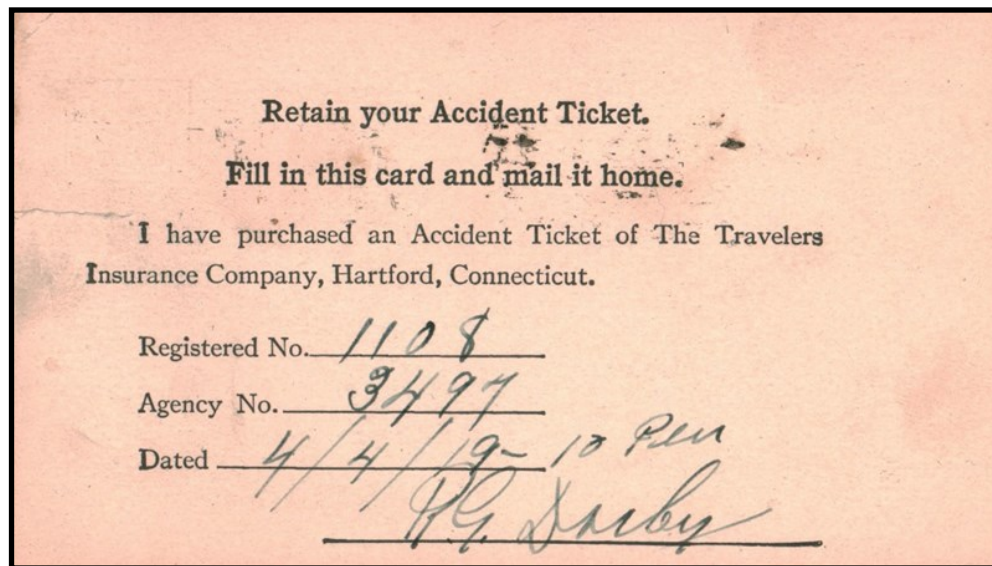 Retain your Accident Ticket.
Fill in this card and mail it home.
I have purchased an Accident Ticket of The Travelers
Insurance Company, Hartford, Connecticut.
Registered No. 1108
Agency No. 3497
Dated 4/4/19-
Darby